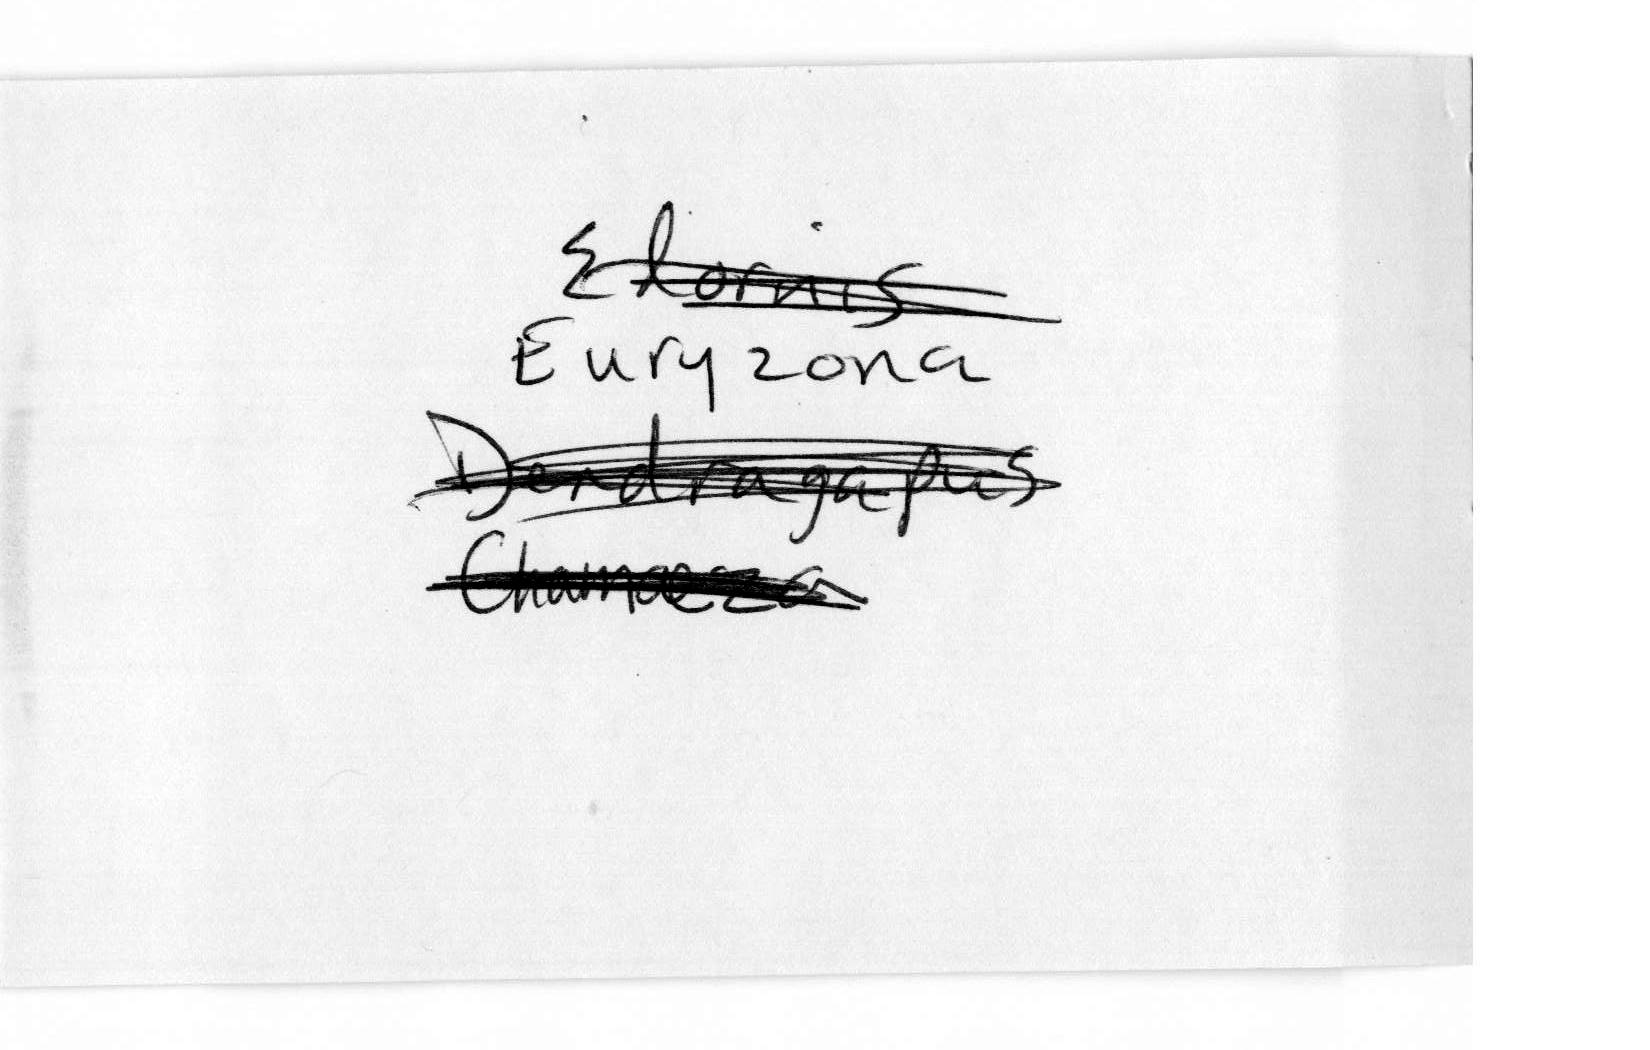 Elornis
Euryzona
Dendragapus
Chamaeza